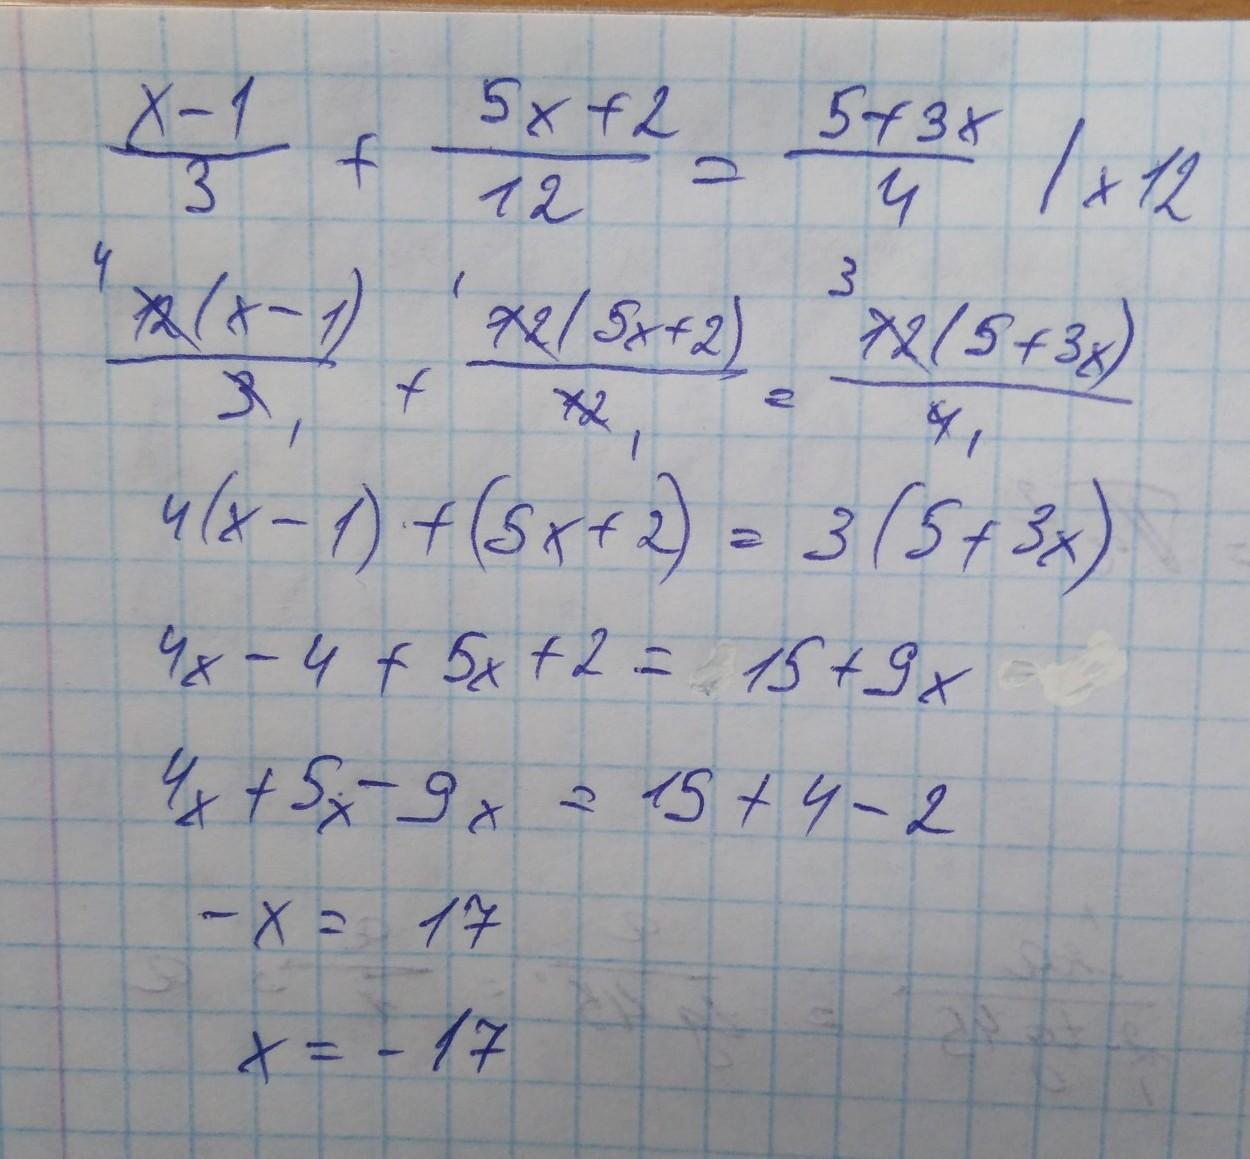 x-1/3 + 5x+2/12 = 5+3x/4 / x 12
4 12(x-1)/3 1 + 1 12(5x+2)/12 1 = 3 12(5+3x)/4 1
4(x-1) + (5x+2) = 3(5+3x)
4x-4+5x+2 = 15+9x
4x+5x-9x = 15+4-2
-x = 17
x = -17